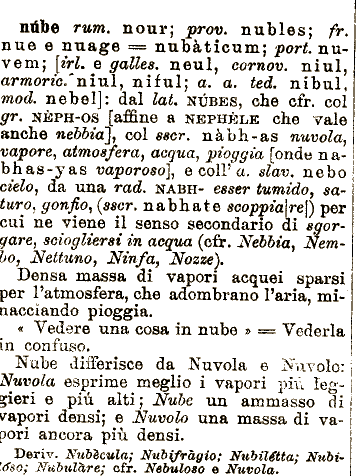 núbe rum. nour; prov. nubles; fr.
nue e nuage = nubàticum; port. nu-
vem; [irl. e galles. neul, cornov. niul,
armoric. niul, niful; a. a. ted. nibul,
mod. nebel]: dal lat. NÚBES, che cfr. col
gr. NÈPH-OS [affine a NEPHÈLE che vale
anche nebbia], col sscr. nàbh-as nuvola,
vapore, atmosfera, acqua, pioggia [onde na-
bhas-yas vaporoso], e coll' a. slav. nebo
cielo, da una rad. NABH- esser tumido, sa-
turo, gonfio, (sscr. nabhate scoppia|re|) per
cui ne viene il senso secondario di sgor-
gare, sciogliersi in acqua (cfr. Nebbia, Nem-
bo, Nettuno, Ninfa, Nozze).
Densa massa di vapori acquei sparsi
per l'atmosfera, che adombrano l'aria, mi-
nacciando pioggia.
« Vedere una cosa in nube » = Vederla
in confuso.
Nube differisce da Nuvola e Nuvolo:
Nuvola esprime meglio i vapori più leg-
gieri e più alti; Nube un ammasso di
vapori densi; e Nuvolo una massa di va-
pori ancora più densi.
Deriv. Nubècula; Nubifràgio; Nubilétta; Nubi-
lóso; Nubulàre; cfr. Nebuloso e Nuvola.